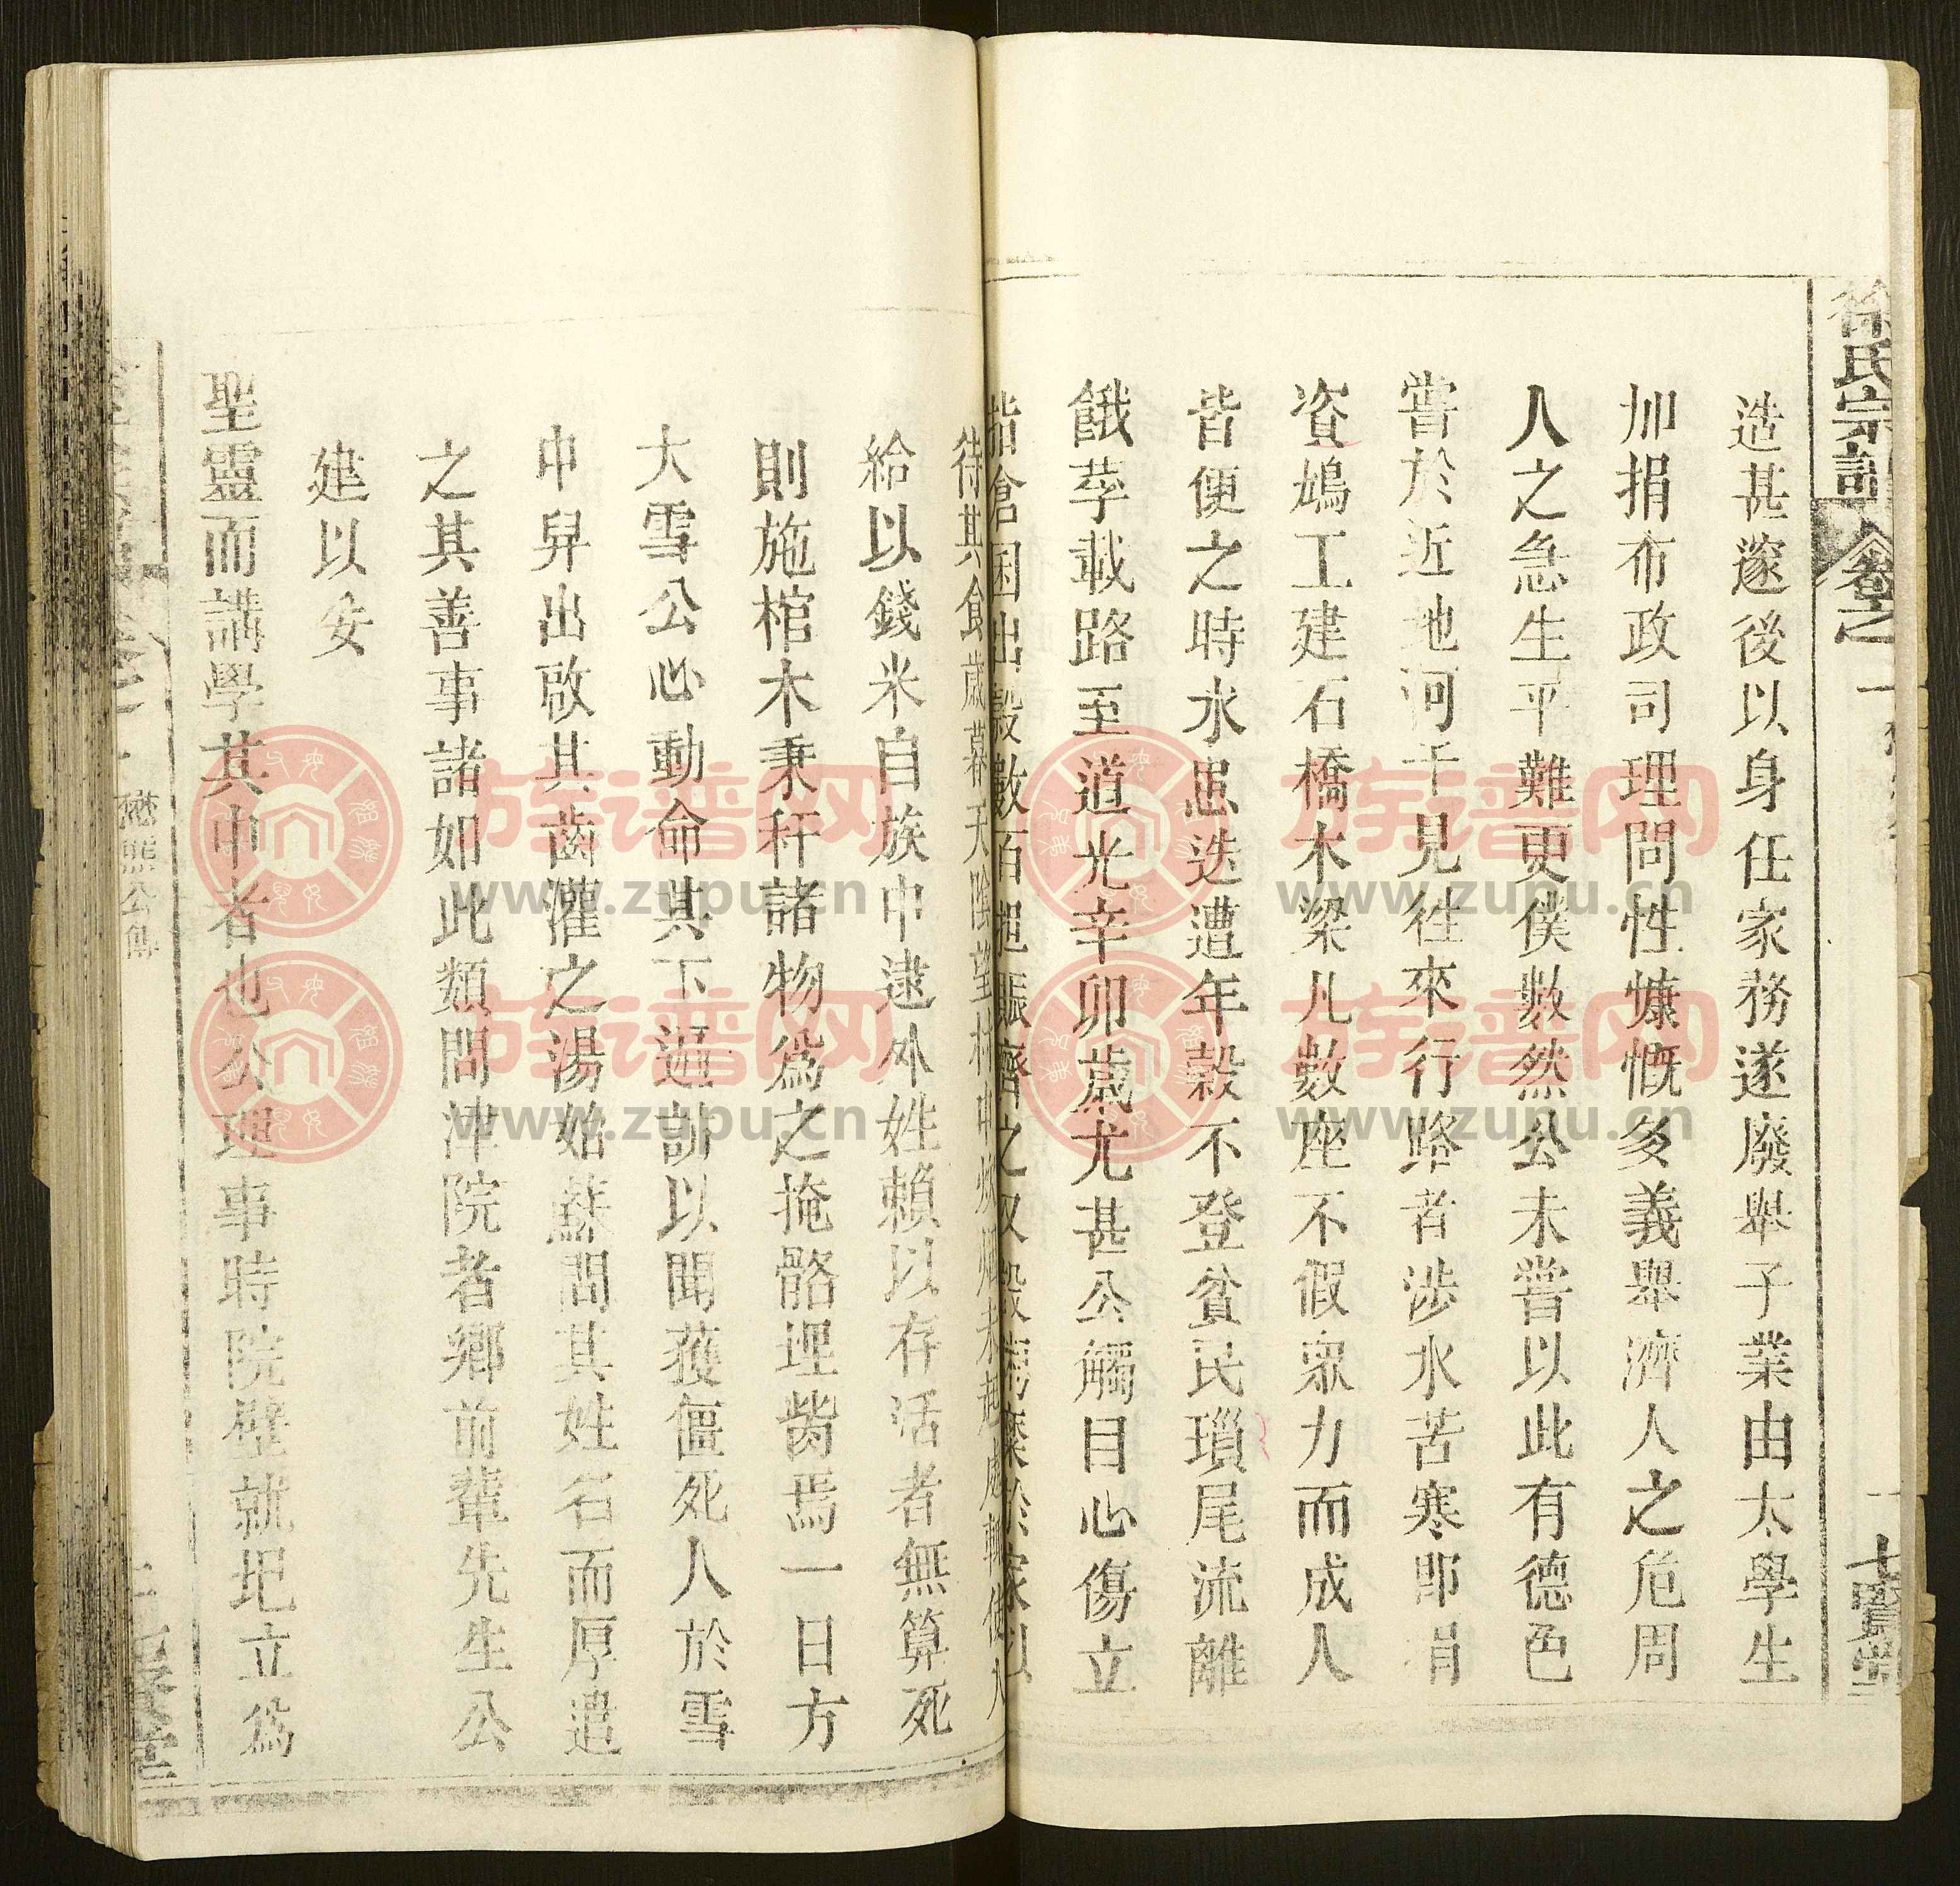 徐氏宗譜 卷之一
七賢堂
造甚邃後以身任家務遂廢舉子業由太學生
加捐布政司理問性慷慨多義舉濟人之危周
人之急生平難更僕數然公未嘗以此有德色
嘗於近地河干見徃來行路者涉水苦寒即捐
資鳩工建石橋木梁凡數座不假眾力而成人
皆便之時水患迭遭年穀不登貧民瑣尾流離
餓莩載路至道光辛卯歲尤甚公觸目心傷立
指倉囷出穀數百 賑濟之又設 糜於家以
待其食歲暮天陰望村中 煙未起處輒使人
給以錢米自族中逮外姓賴以存活者無算死
則施棺木秉秆諸物為之掩骼埋胔焉一日方
大雪公心動命其下 以聞獲僵死人於雪
中舁出啟其齒灌之湯始蘇問其姓名而厚遣
之其善事諸如此類問津院者鄉前輩先生公
建以安
聖靈而講學其中者也公理事時院壁就圯立為
懋熊公傳
族谱网
www.zupu.cn
族谱网
www.zupu.cn
族谱网
www.zupu.cn
族谱网
www.zupu.cn